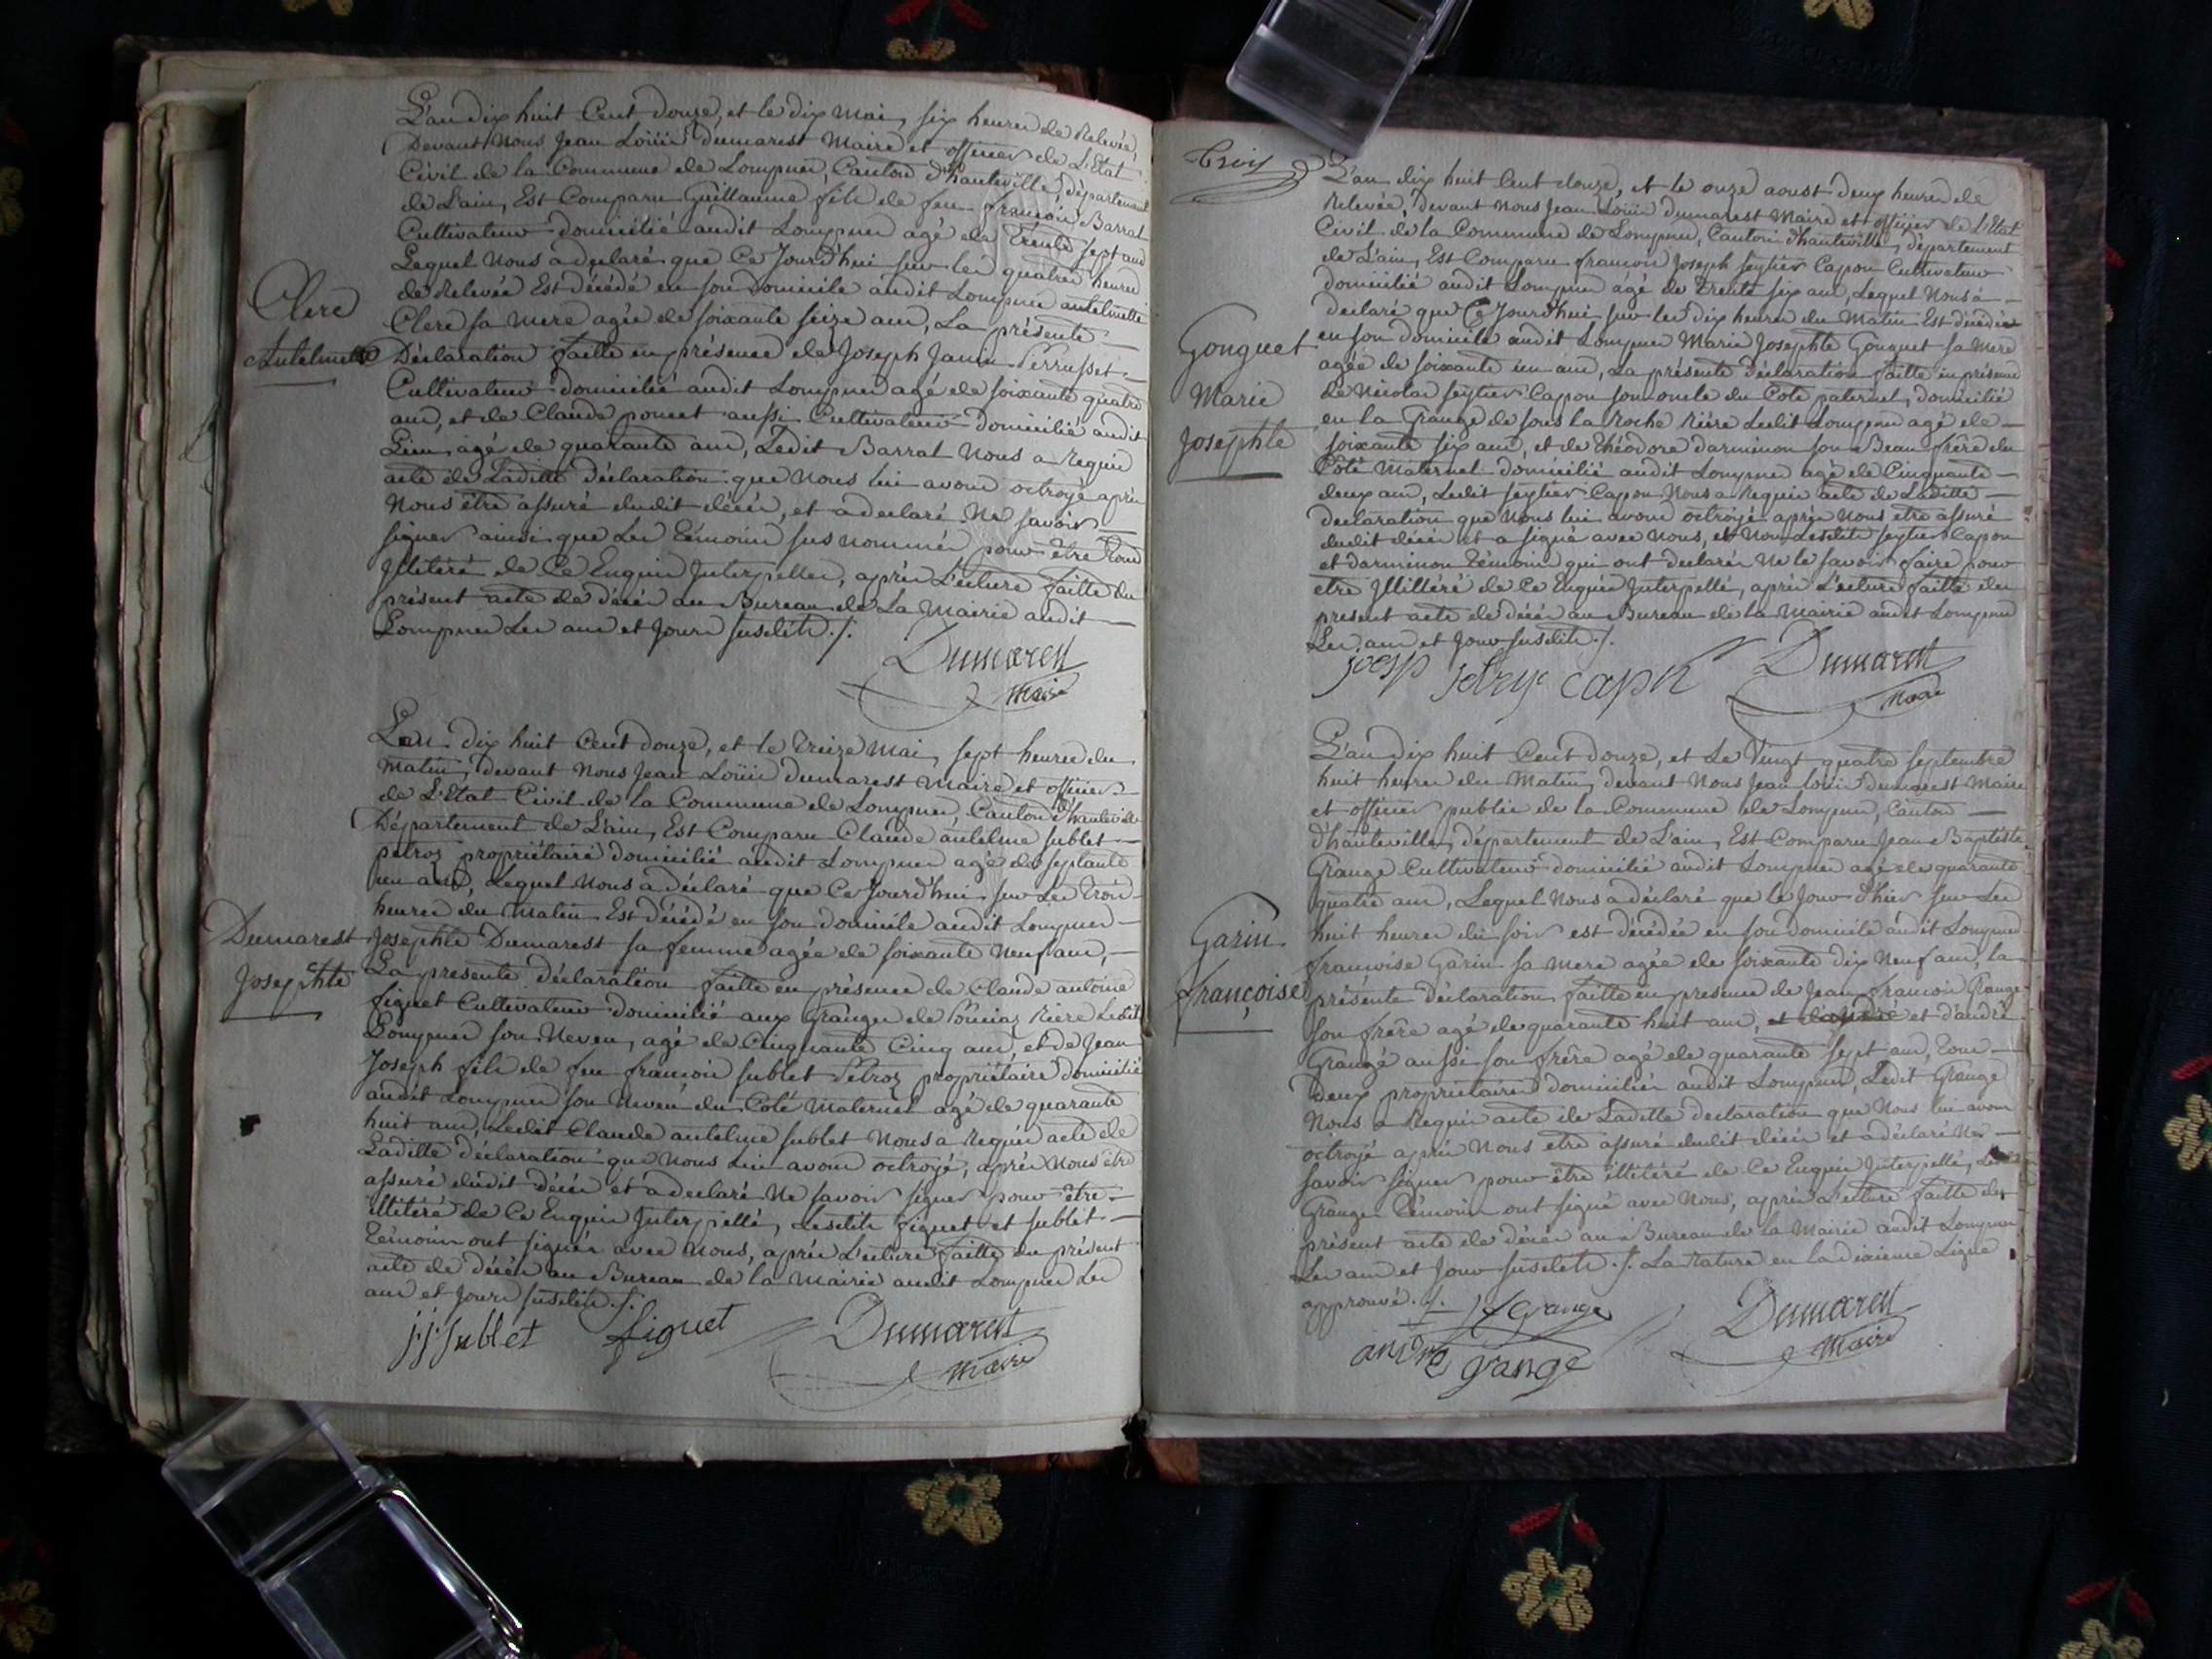 L'an dix huit Cent douze, et le dix Mai, six heures de Relevée,
Devant Nous Jean Loüis Dumarest Maire et officier de L'Etat
Civil de la Commune de Lompnes, Canton d'hauteville, département
de L'ain, Est Comparu Guillaume fils de feu françois Barrat
Cultivateur domicilié audit Lompnes agé de Trente sept ans
Lequel Nous a declaré que Ce Jourd'hui sur les quatres heures
de Relevée Est décédé en son domicile audit Lompnes antelmette
Clerc sa Mere agée de soixante seize ans, La présente
Clerc
Antelmette
Déclaration faitte en présence de Joseph Janin Perrusset
Cultivateur domicilié audit Lompnes agé de soixante quatre
ans, et de Claude poncet aussi Cultivateur domicilié audit
Lieu, agé de quarante ans, Ledit Barrat Nous a Requis
acte de Laditte déclaration que Nous lui avons octroyé après
Nous être assuré dudit décès, et a declaré Ne savoir
signer ainsi que Les Témoins sus nommés pour être Tous
Illitéré de Ce Enquis Interpellés, après L'ecture faitte du
présent acte de décès au Bureau de La Mairie audit
Lompnes Les ans et Jours susdits ./.
Dumarest
Maire
L'an dix huit Cent douze, et le Treize Mai, sept heures du
Matin, devant Nous Jean Loüis dumarest Maire et officier
de L'Etat Civil de la Commune de Lompnes, Canton d'hauteville
Département de L'ain, Est Comparu Claude antelme sublet
petroz propriétaire domicilié audit Lompnes agé de septante
un ans, Lequel Nous a déclaré que Ce Jourd'hui sur Les Trois
heures du Matin Est décédé en son domicile audit Lompnes
Dumarest
Josephte
Josephte Dumarest sa femme agée de soixante Neuf ans,
La presente déclaration faitte en présence de Claude antoine
figuet Cultivateur domicilié aux Granges de Riere Ledit
Lompnes son Neveu, agé de Cinquante Cinq ans, et de Jean
Joseph fils de feu françois sublet Petroz propriétaire domicilié
audit Lompnes son Neveu du Coté Maternel agé de quarante
huit ans, Ledit Claude antelme sublet Nous a Requis acte de
Laditte déclaration que Nous Lui avons octroyé, après Nous être
assuré dudit décès et a declaré Ne savoir signer pour être
illitéré de Ce Enquis Interpellé, Lesdits figuet et sublet
Témoins ont signés avec Nous, après L'ecture faitte du présent
acte de décès au Bureau de la Mairie audit Lompnes Les
ans et Jours susdits ./.
j.j. sublet figuet Dumarest
Maire
Trois
L'an dix huit Cent douze, et le onze aoust deux heures de
Relevée, devant Nous Jean Loüis dumarest Maire et officier de L'Etat
Civil de la Commune de Lompnes, Canton d'hauteville, département
de L'ain, Est Comparu françois Joseph seytier Capon Cultivateur
domicilié audit Lompnes agé de Trente six ans, Lequel Nous a
declaré que Ce Jourd'hui sur les dix heures du Matin Est décédée
Gonguet
Marie
Josephte
en son domicile audit Lompnes Marie Josephte Gonguet sa Mere
agée de soixante un ans, La présente déclaration faitte en présence
de Nicolas seytier Capon son oncle du Coté paternel, domicilié
en la Grange de sous la Roche Riere Ledit Lompnes agé de
soixante six ans, et de Théodore darminon son Beau frère du
Côté Maternel domicilié audit Lompnes agé de Cinquante
deux ans, Ledit seytier Capon Nous a Requis acte de Laditte
declaration que Nous lui avons octroyé après Nous être assuré
dudit décès et a signé avec Nous, et Non Lesdits seytier Capon
et darminon Témoins qui ont declarés Ne le savoir faire pour
etre Illittéré de Ce Enquis Interpellé, après L'ecture faitte du
present acte de décès au Bureau de la Mairie audit Lompnes
Les ans et Jour susdits ./.
Dumarest
Maire
L'an dix huit Cent douze, et Le Vingt quatre septembre
huit heures du Matin, devant Nous Jean Loüis Dumarest Maire
et officier public de la Commune de Lompnes, Canton
d'hauteville, département de L'ain, Est Comparu Jean Baptiste
Grange Cultivateur domicilié audit Lompnes agé de quarante
quatre ans, Lequel Nous a déclaré que le Jour d'hier sur Les
Garin
françoise
huit heures du soir est décédée en son domicile audit Lompnes
françoise Garin sa Mere agée de soixante dix Neuf ans, La
présente déclaration faitte en presence de Jean françois Grange
son frère agé de quarante huit ans, et d'andré
Grange aussi son frère agé de quarante sept ans, Tous
deux propriétaires domiciliés audit Lompnes, Ledit Grange
Nous a Requis acte de Laditte declaration que Nous lui avons
octroyé après Nous être assuré dudit décès et a déclaré Ne
savoir signer pour être illitéré de Ce Enquis Interpellé, Les
Grange Témoins ont signé avec Nous, après L'ecture faitte du
présent acte de décès au Bureau de la Mairie audit Lompnes
Les ans et Jour susdits ./. La Rature en la dixieme Ligne
approuvé ./. Grange
andré grange
Dumarest
Maire